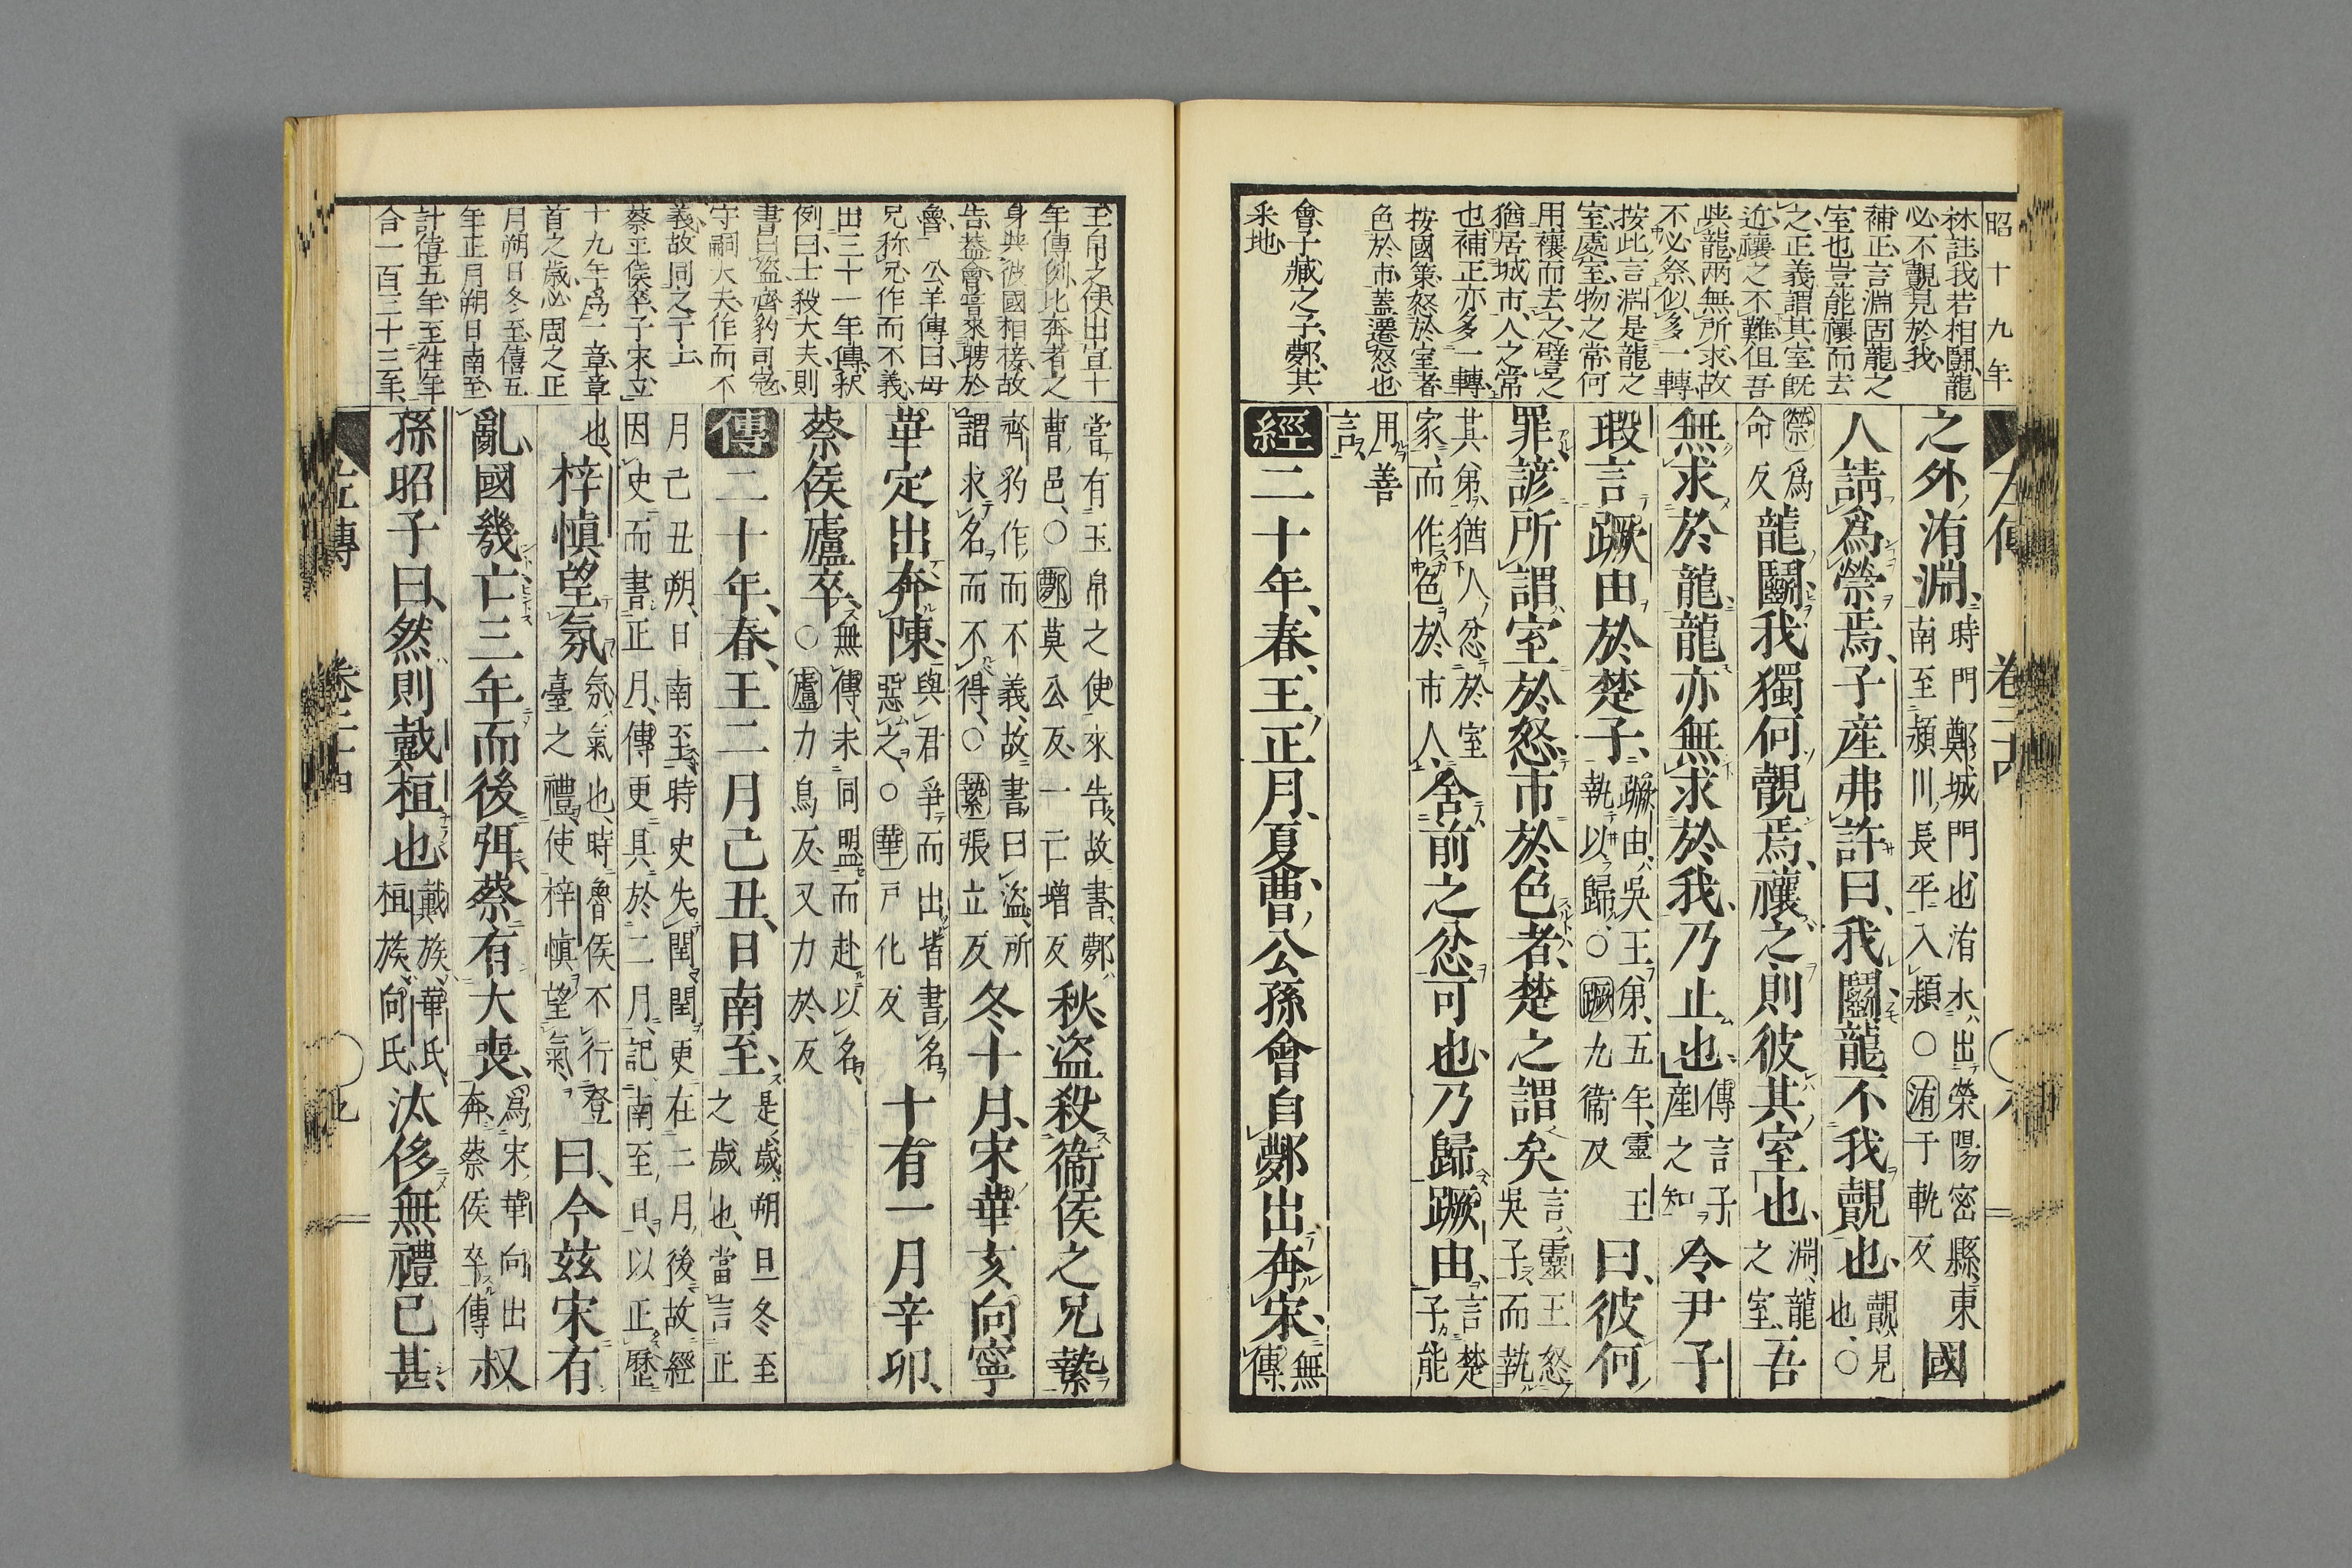 昭十九年
林註我若相鬭龍
必不覿見於我
補正言淵固龍之
室也豈能禳而去
之正義謂其室既
近禳之不難但吾
與龍兩無所求故
不必祭似多一轉
按此言淵是龍之
室處室物之常何
用禳而去之譬之
猶居城市人之常
也補正亦多一轉
按國策怒於室者
色於市蓋遷怒也
會子臧之子鄸其
采地
之外洧淵、時門鄭城門也洧水出滎陽密縣東南至潁川長平入潁○洧于軌反國
人請爲禜焉、子産弗許曰、我鬭龍不我覿也、覿見也○
禜爲命反龍鬭我獨何覿焉、禳之則彼其室也、淵龍之室吾
無求於龍龍亦無求於我、乃止也、傳言子産之知令尹子
瑕言蹶由於楚子、蹶由吳王弟五年靈王執以歸○蹶九衞反曰、彼何
罪諺所謂室於怒、市於色者、楚之謂矣言靈王怒吳子而執
其弟猶人忿於室家而作色於市人舍前之忿可也、乃歸蹶由、言楚子能
用善言
經二十年、春、王正月、夏、曹公孫會自鄸出奔宋、無傳
玉帛之使出宣十
年傳例比奔者之
身與彼國相接故
告蓋會嘗來聘於
魯 公羊傳曰母
兄称兄作而不義
出三十一年傳釈
例曰士殺大夫則
書曰盗齊豹司寇
守嗣大夫作而不
義故同之于士
蔡平侯卒子朱立
十九年為一章章
首之歳必周之正
月朔日冬至僖五
年正月朔日南至
計僖五年至徃年
合一百三十三年
嘗有玉帛之使來告故書鄸曹邑○鄸莫公反一亡增反秋、盗殺衞侯之兄縶
齊豹作而不義故書曰盗所謂求名而不得○縶張立反冬十月、宋華亥向寧
華定出奔陳、與君爭而出皆書名惡之○華戸化反十有一月辛卯、
蔡侯廬卒、無傳未同盟而赴以名○廬力烏反又力於反
傳二十年、春、王二月己丑、日南至、是歳朔旦冬至之歳也當言正
月己丑朔日南至時史失閏閏更在二月後故經因史而書正月傳更具於二月記南至日以正歷
也梓慎望氛氛氣也時魯侯不行登臺之禮使梓慎望氣曰、今茲宋有
亂、國幾亡三年而後弭、蔡有大喪、爲宋華向出奔蔡侯卒傳叔
孫昭子曰、然則戴桓也、戴族華氏桓族向氏汏侈無禮已甚、
左傳
卷二十四
九